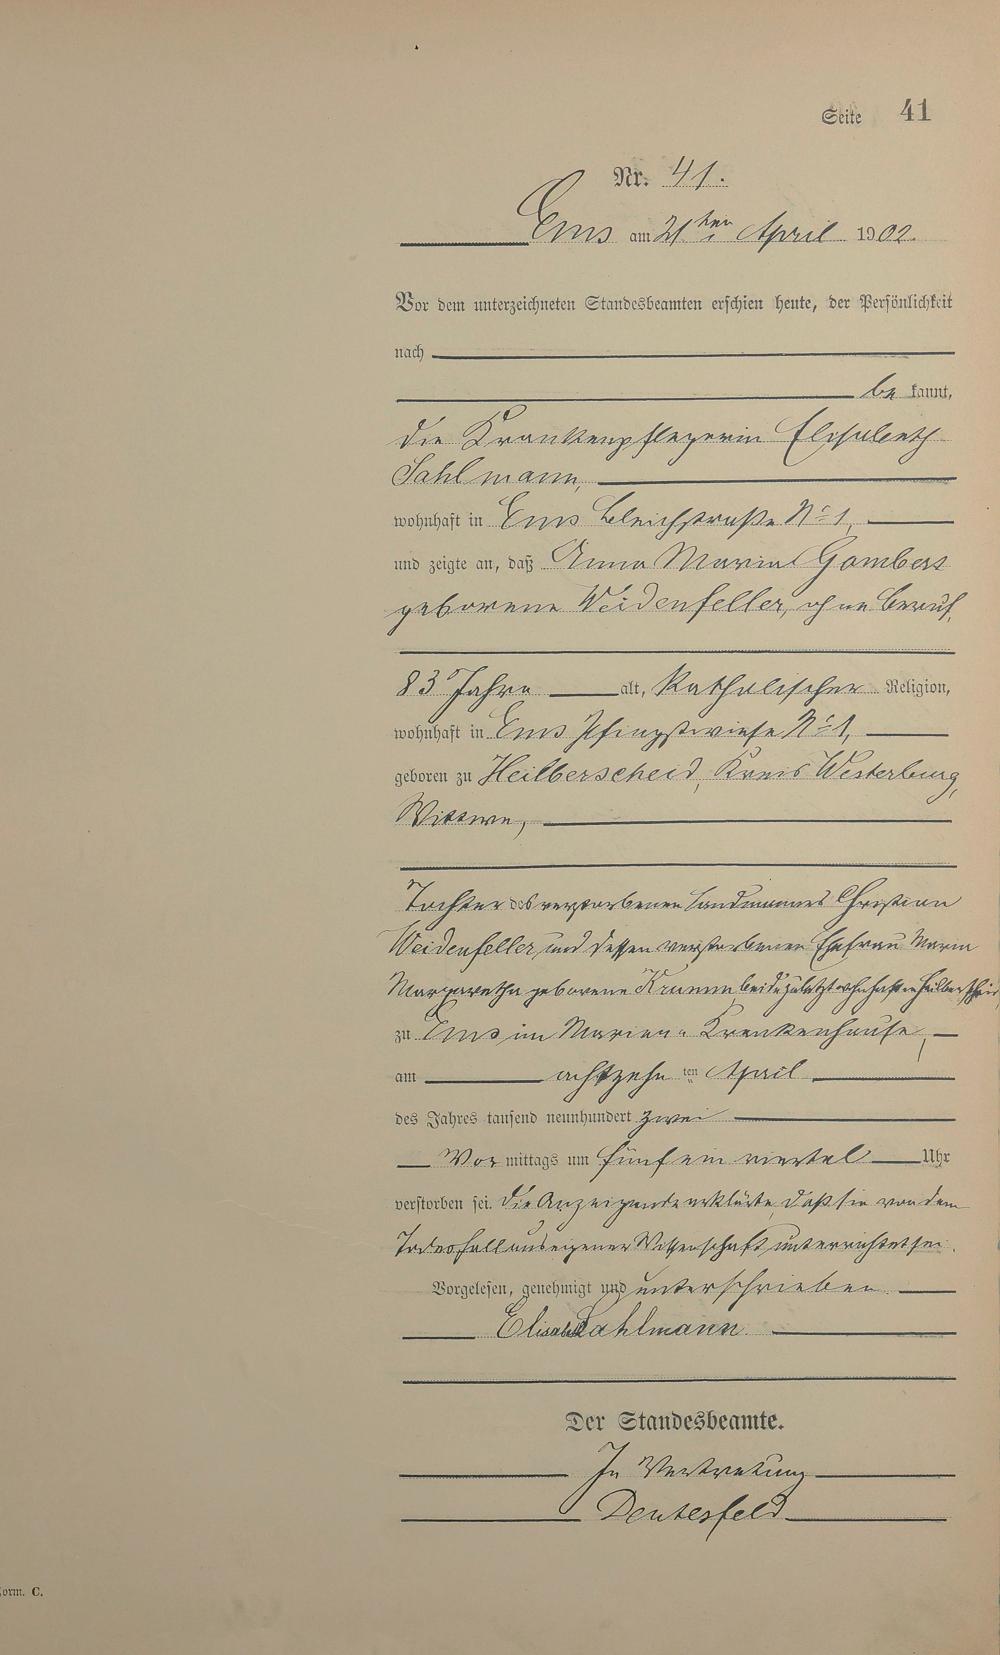 Seite 41
Nr. 41.
Ems am 21ten April 1902.
Vor dem unterzeichneten Standesbeamten erschien heute, der Persönlichkeit
nach
be kannt,
die Krankenpflegerin Elisabeth
Sahlmann,
wohnhaft in Ems Bleichstraße No 1,
und zeigte an, daß Anna Maria Gombert
geborene Weidenfeller, ohne Beruf,
83 Jahre alt, katholischer Religion,
wohnhaft in Ems Pfingstwiese No 1,
geboren zu Heilberscheid, Kreis Westerburg,
Wittwe,
Tochter des verstorbenen Landmannes Christian
Weidenfeller und dessen verstorbenen Ehefrau Maria
Margaretha geborene Krumm, beide zuletzt wohnhaft in Heilberscheid,
zu Ems im Marien-Krankenhause,
am achtzehn ten April
des Jahres tausend neunhundert zwei
Vor mittags um fünf ein viertel Uhr
verstorben sei. Die Anzeigende erklärte, daß sie von dem
Todesfall aus eigener Wissenschaft unterrichtet sei.
Vorgelesen, genehmigt und unterschrieben
Elisabeth Sahlmann
Der Standesbeamte.
In Vertretung
Deutesfeld
Form. C.